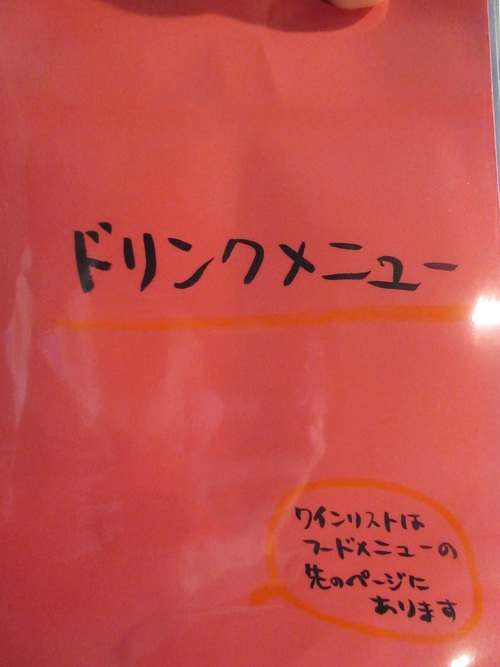 ドリンクメニュー
ワインリストは
フードメニューの
先のページに
あります